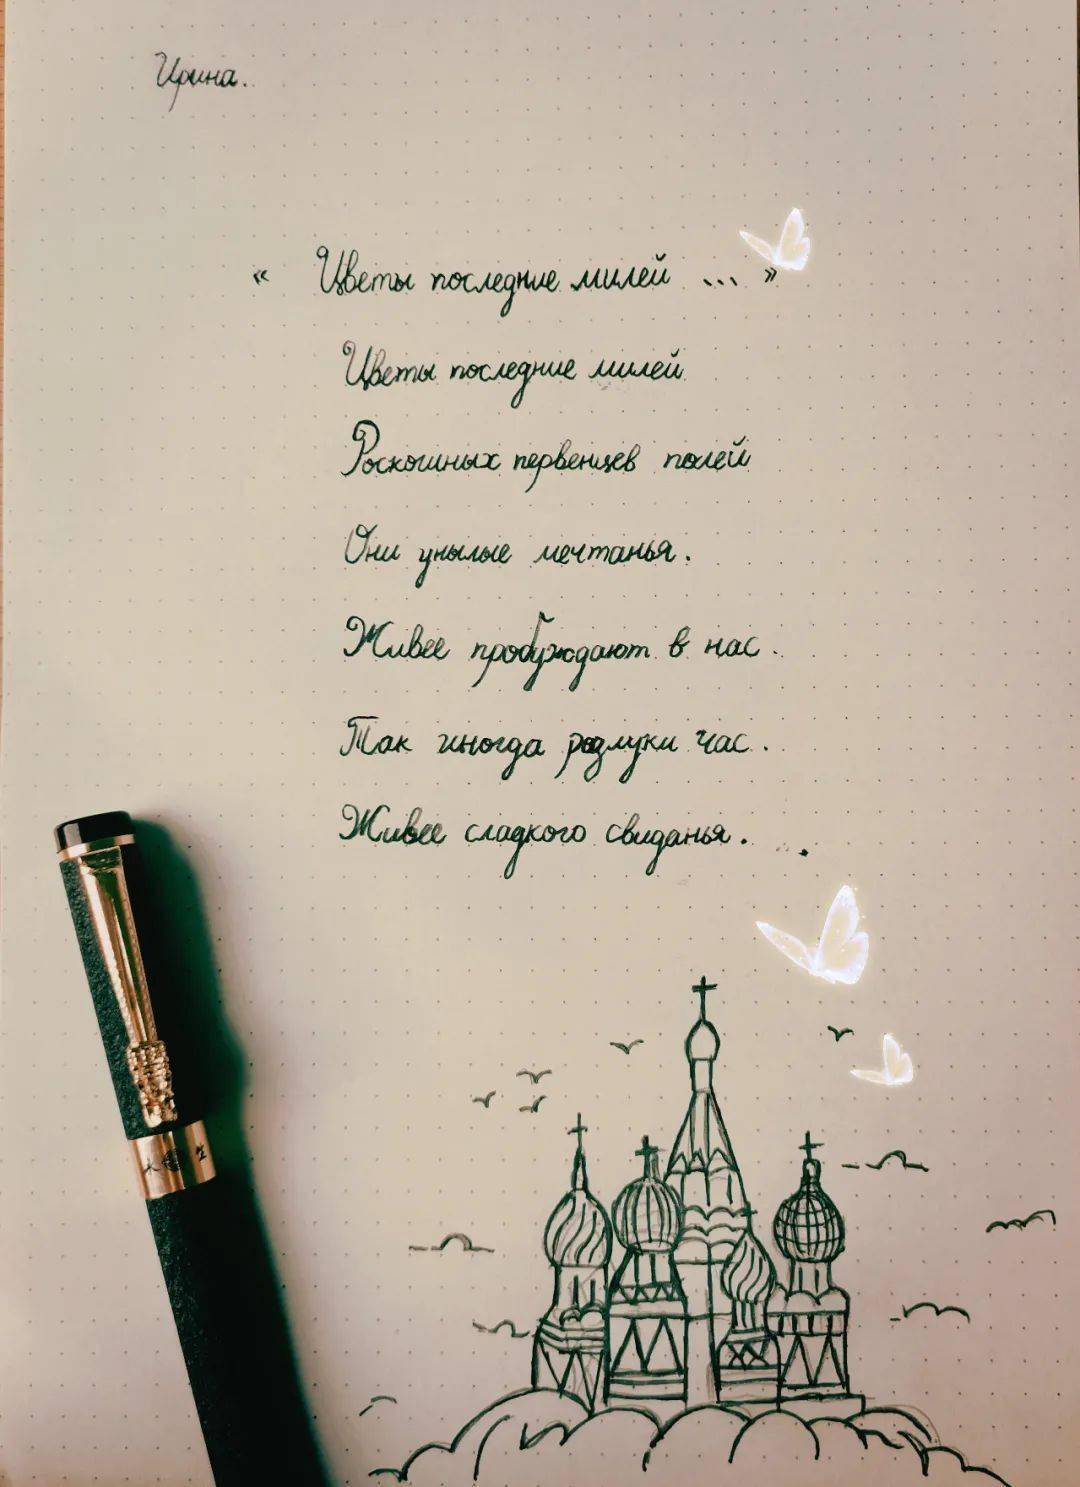 Ирина.
« Цветы последние милей ... »
Цветы последние милей
Роскошных первенцев полей
Они унылые мечтанья.
Живее пробуждают в нас.
Так иногда разлуки час.
Живее сладкого свиданья.